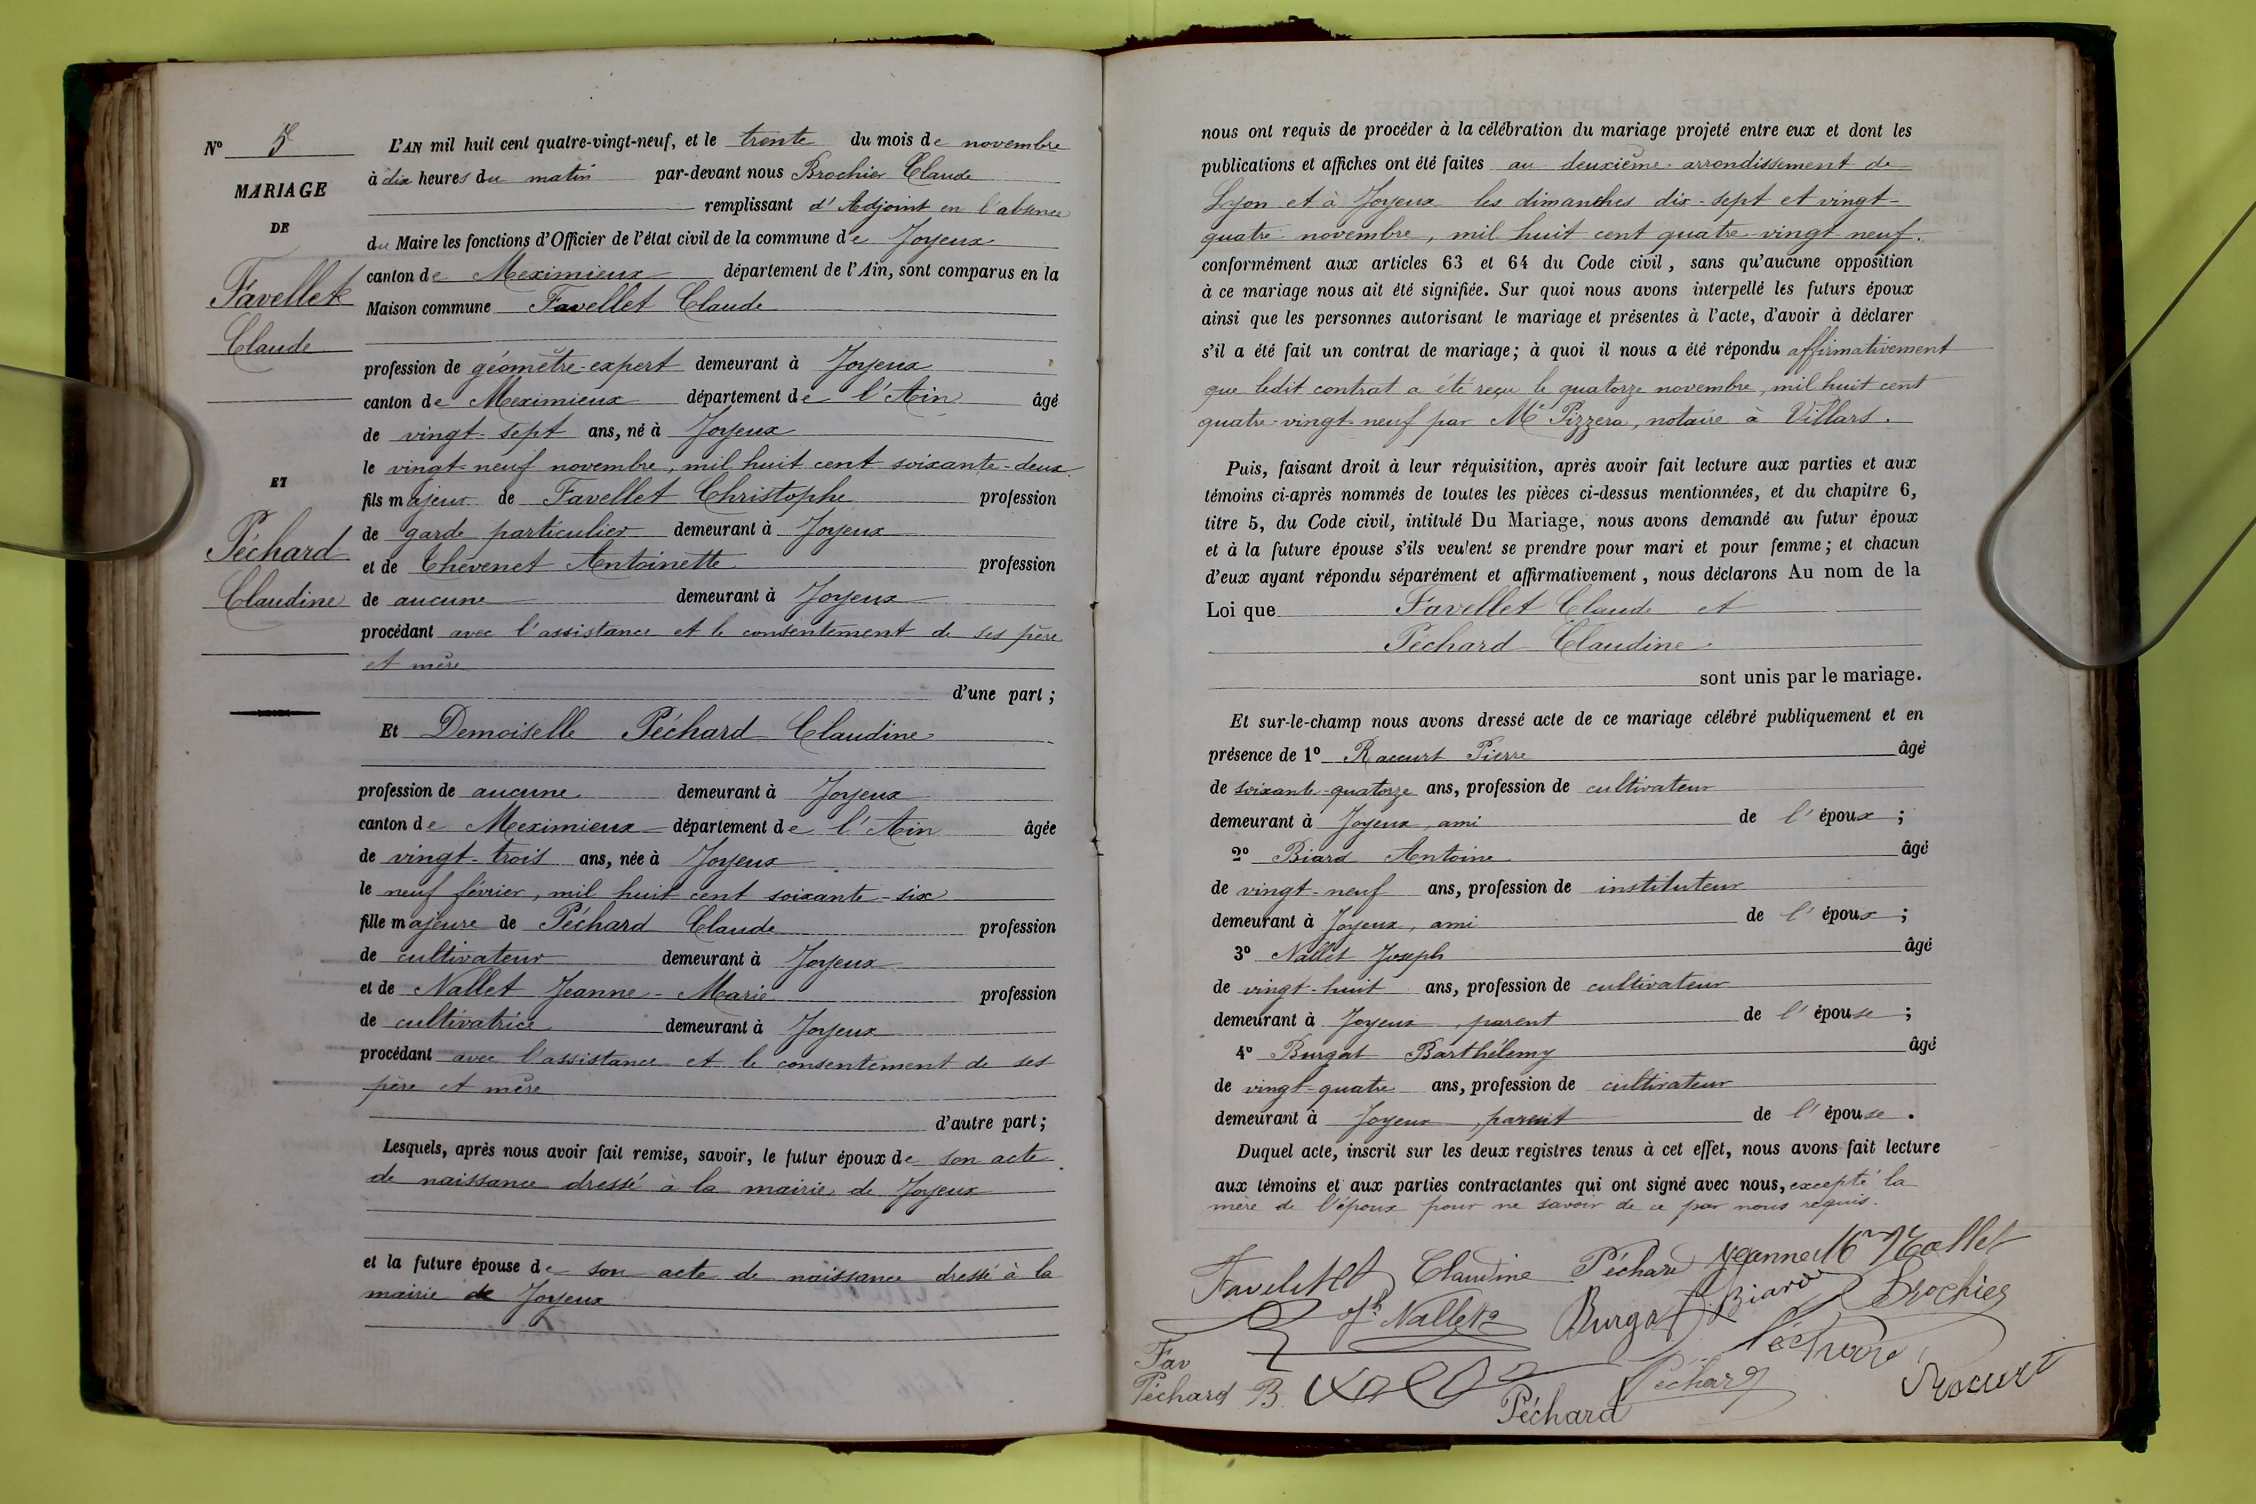 N° 5
MARIAGE
DE
Favellet
Claude
ET
Péchard
Claudine
L'AN mil huit cent quatre-vingt-neuf, et le trente du mois de novembre
à dix heures du matin par-devant nous Brochier Claude
remplissant d'Adjoint en l'absence
du Maire les fonctions d'Officier de l'état civil de la commune de Joyeux
canton de Meximieux département de l'Ain, sont comparus en la
Maison commune Favellet Claude
profession de géomètre-expert demeurant à Joyeux
canton de Meximieux département de l'Ain âgé
de vingt-sept ans, né à Joyeux
le vingt-neuf novembre, mil huit cent soixante-deux
fils majeur de Favellet Christophe profession
de garde particulier demeurant à Joyeux
et de Chevenet Antoinette profession
de aucune demeurant à Joyeux
procédant avec l'assistance et le consentement de ses père
et mère
d'une part ;
Et Demoiselle Péchard Claudine
profession de aucune demeurant à Joyeux
canton de Meximieux département de l'Ain âgée
de vingt-trois ans, née à Joyeux
le neuf février, mil huit cent soixante-six
fille majeure de Péchard Claude profession
de cultivateur demeurant à Joyeux
et de Nallet Jeanne-Marie profession
de cultivatrice demeurant à Joyeux
procédant avec l'assistance et le consentement de ses
père et mère
d'autre part ;
Lesquels, après nous avoir fait remise, savoir, le futur époux de son acte
de naissance dressé à la mairie de Joyeux
et la future épouse de son acte de naissance dressé à la
mairie de Joyeux
nous ont requis de procéder à la célébration du mariage projeté entre eux et dont les
publications et affiches ont été faites au deuxième arrondissement de
Lyon et à Joyeux les dimanches dix-sept et vingt-
quatre novembre, mil huit cent quatre-vingt-neuf.
conformément aux articles 63 et 64 du Code civil, sans qu'aucune opposition
à ce mariage nous ait été signifiée. Sur quoi nous avons interpellé les futurs époux
ainsi que les personnes autorisant le mariage et présentes à l'acte, d'avoir à déclarer
s'il a été fait un contrat de mariage; à quoi il nous a été répondu affirmativement
que ledit contrat a été reçu le quatorze novembre, mil huit cent
quatre-vingt-neuf par Me Pizzera, notaire à Villars.
Puis, faisant droit à leur réquisition, après avoir fait lecture aux parties et aux
témoins ci-après nommés de toutes les pièces ci-dessus mentionnées, et du chapitre 6,
titre 5, du Code civil, intitulé Du Mariage, nous avons demandé au futur époux
et à la future épouse s'ils veulent se prendre pour mari et pour femme; et chacun
d'eux ayant répondu séparément et affirmativement, nous déclarons Au nom de la
Loi que Favellet Claude et
Péchard Claudine
sont unis par le mariage.
Et sur-le-champ nous avons dressé acte de ce mariage célébré publiquement et en
présence de 1° Raccurt Pierre âgé
de soixante-quatorze ans, profession de cultivateur
demeurant à Joyeux, ami de l'époux ;
2° Biard Antoine âgé
de vingt-neuf ans, profession de instituteur
demeurant à Joyeux, ami de l'époux ;
3° Nallet Joseph âgé
de vingt-huit ans, profession de cultivateur
demeurant à Joyeux, parent de l'épouse ;
4° Burgat Barthélemy âgé
de vingt-quatre ans, profession de cultivateur
demeurant à Joyeux, parent de l'épouse.
Duquel acte, inscrit sur les deux registres tenus à cet effet, nous avons fait lecture
aux témoins et aux parties contractantes qui ont signé avec nous, excepté la
mère de l'époux pour ne savoir de ce par nous requis.
Favellet Claudine Péchard Jeanne Mie Nallet
Jh Nallet Burgat Biard Brochier
Fav
Péchard B. Péchard Raccurt
Péchard